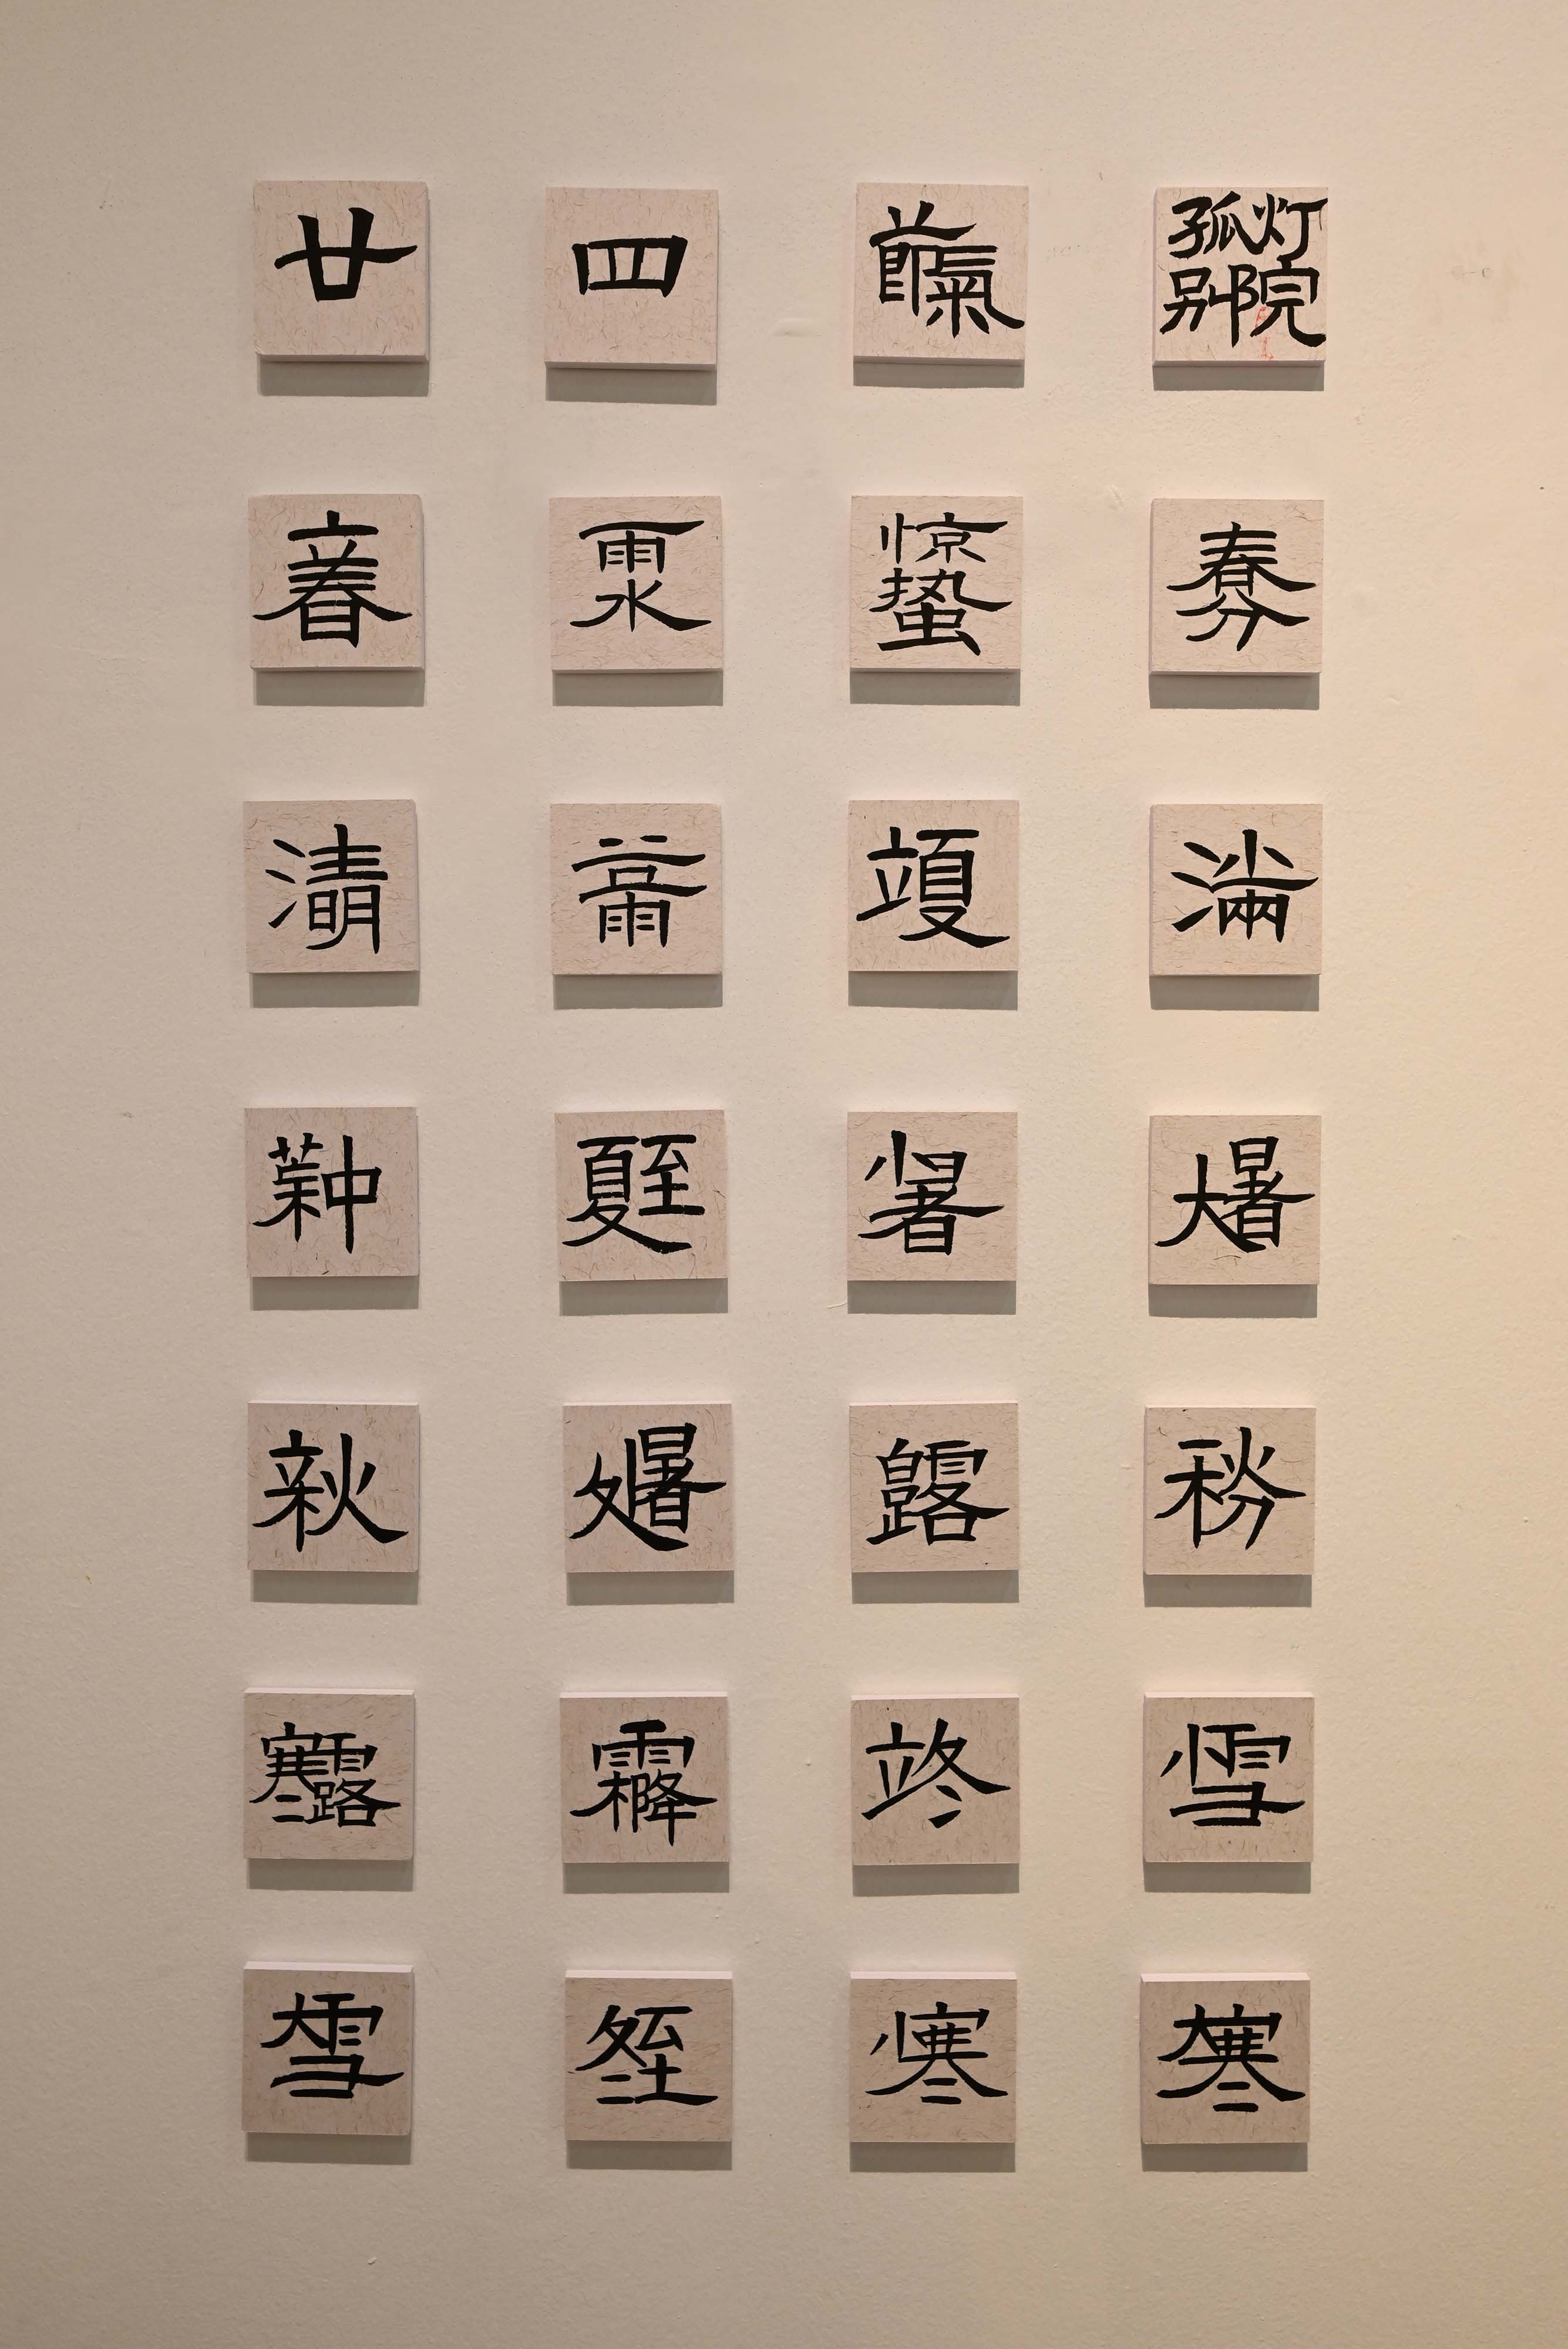 廿 四 節氣 孤灯别院
立春 雨水 惊蛰 春分
清明 谷雨 立夏 小满
芒种 夏至 小暑 大暑
立秋 处暑 白露 秋分
寒露 霜降 立冬 小雪
大雪 冬至 小寒 大寒